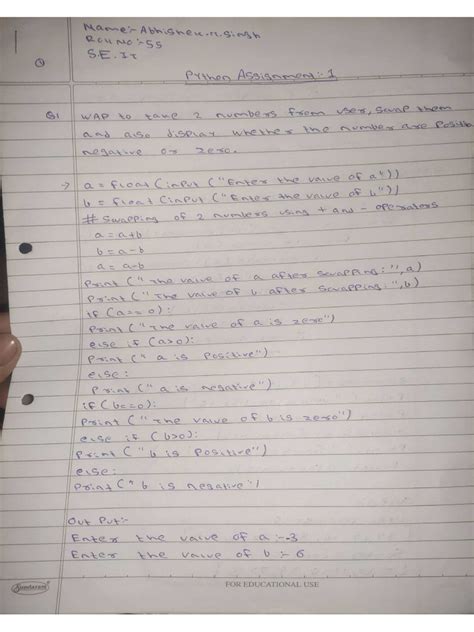 Name:- Abhishek.n.Singh
Roll No:-55
SE.IT
Python Assignment:-1
Q1 WAP to take 2 numbers from user, swap them
and also display whether the number are Positive
negative or zero.
→ a = float (input ("Enter the value of a"))
b = float (input ("Enter the value of b"))
# Swapping of 2 numbers using + and - operators
a = a+b
b = a-b
a = a-b
Print ("The value of a after swapping:", a)
Print ("The value of b after swapping:", b)
if (a==0):
Print ("The value of a is zero")
else if (a>0):
Print (" a is Positive")
else:
Print (" a is negative")
if (b==0):
Print (" The value of b is zero")
else if (b>0):
Print (" b is Positive")
else:
Print (" b is negative")
Out Put:-
Enter the value of a :-3
Enter the value of b :- 6
Sundaram
FOR EDUCATIONAL USE